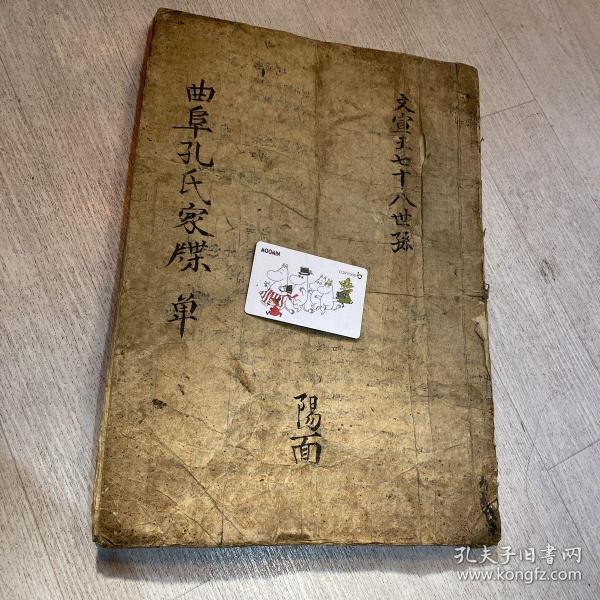 文宣王七十八世孫
曲阜孔氏家牒 單
陽面
MOOMIN
孔夫子旧書网
www.kongfz.com